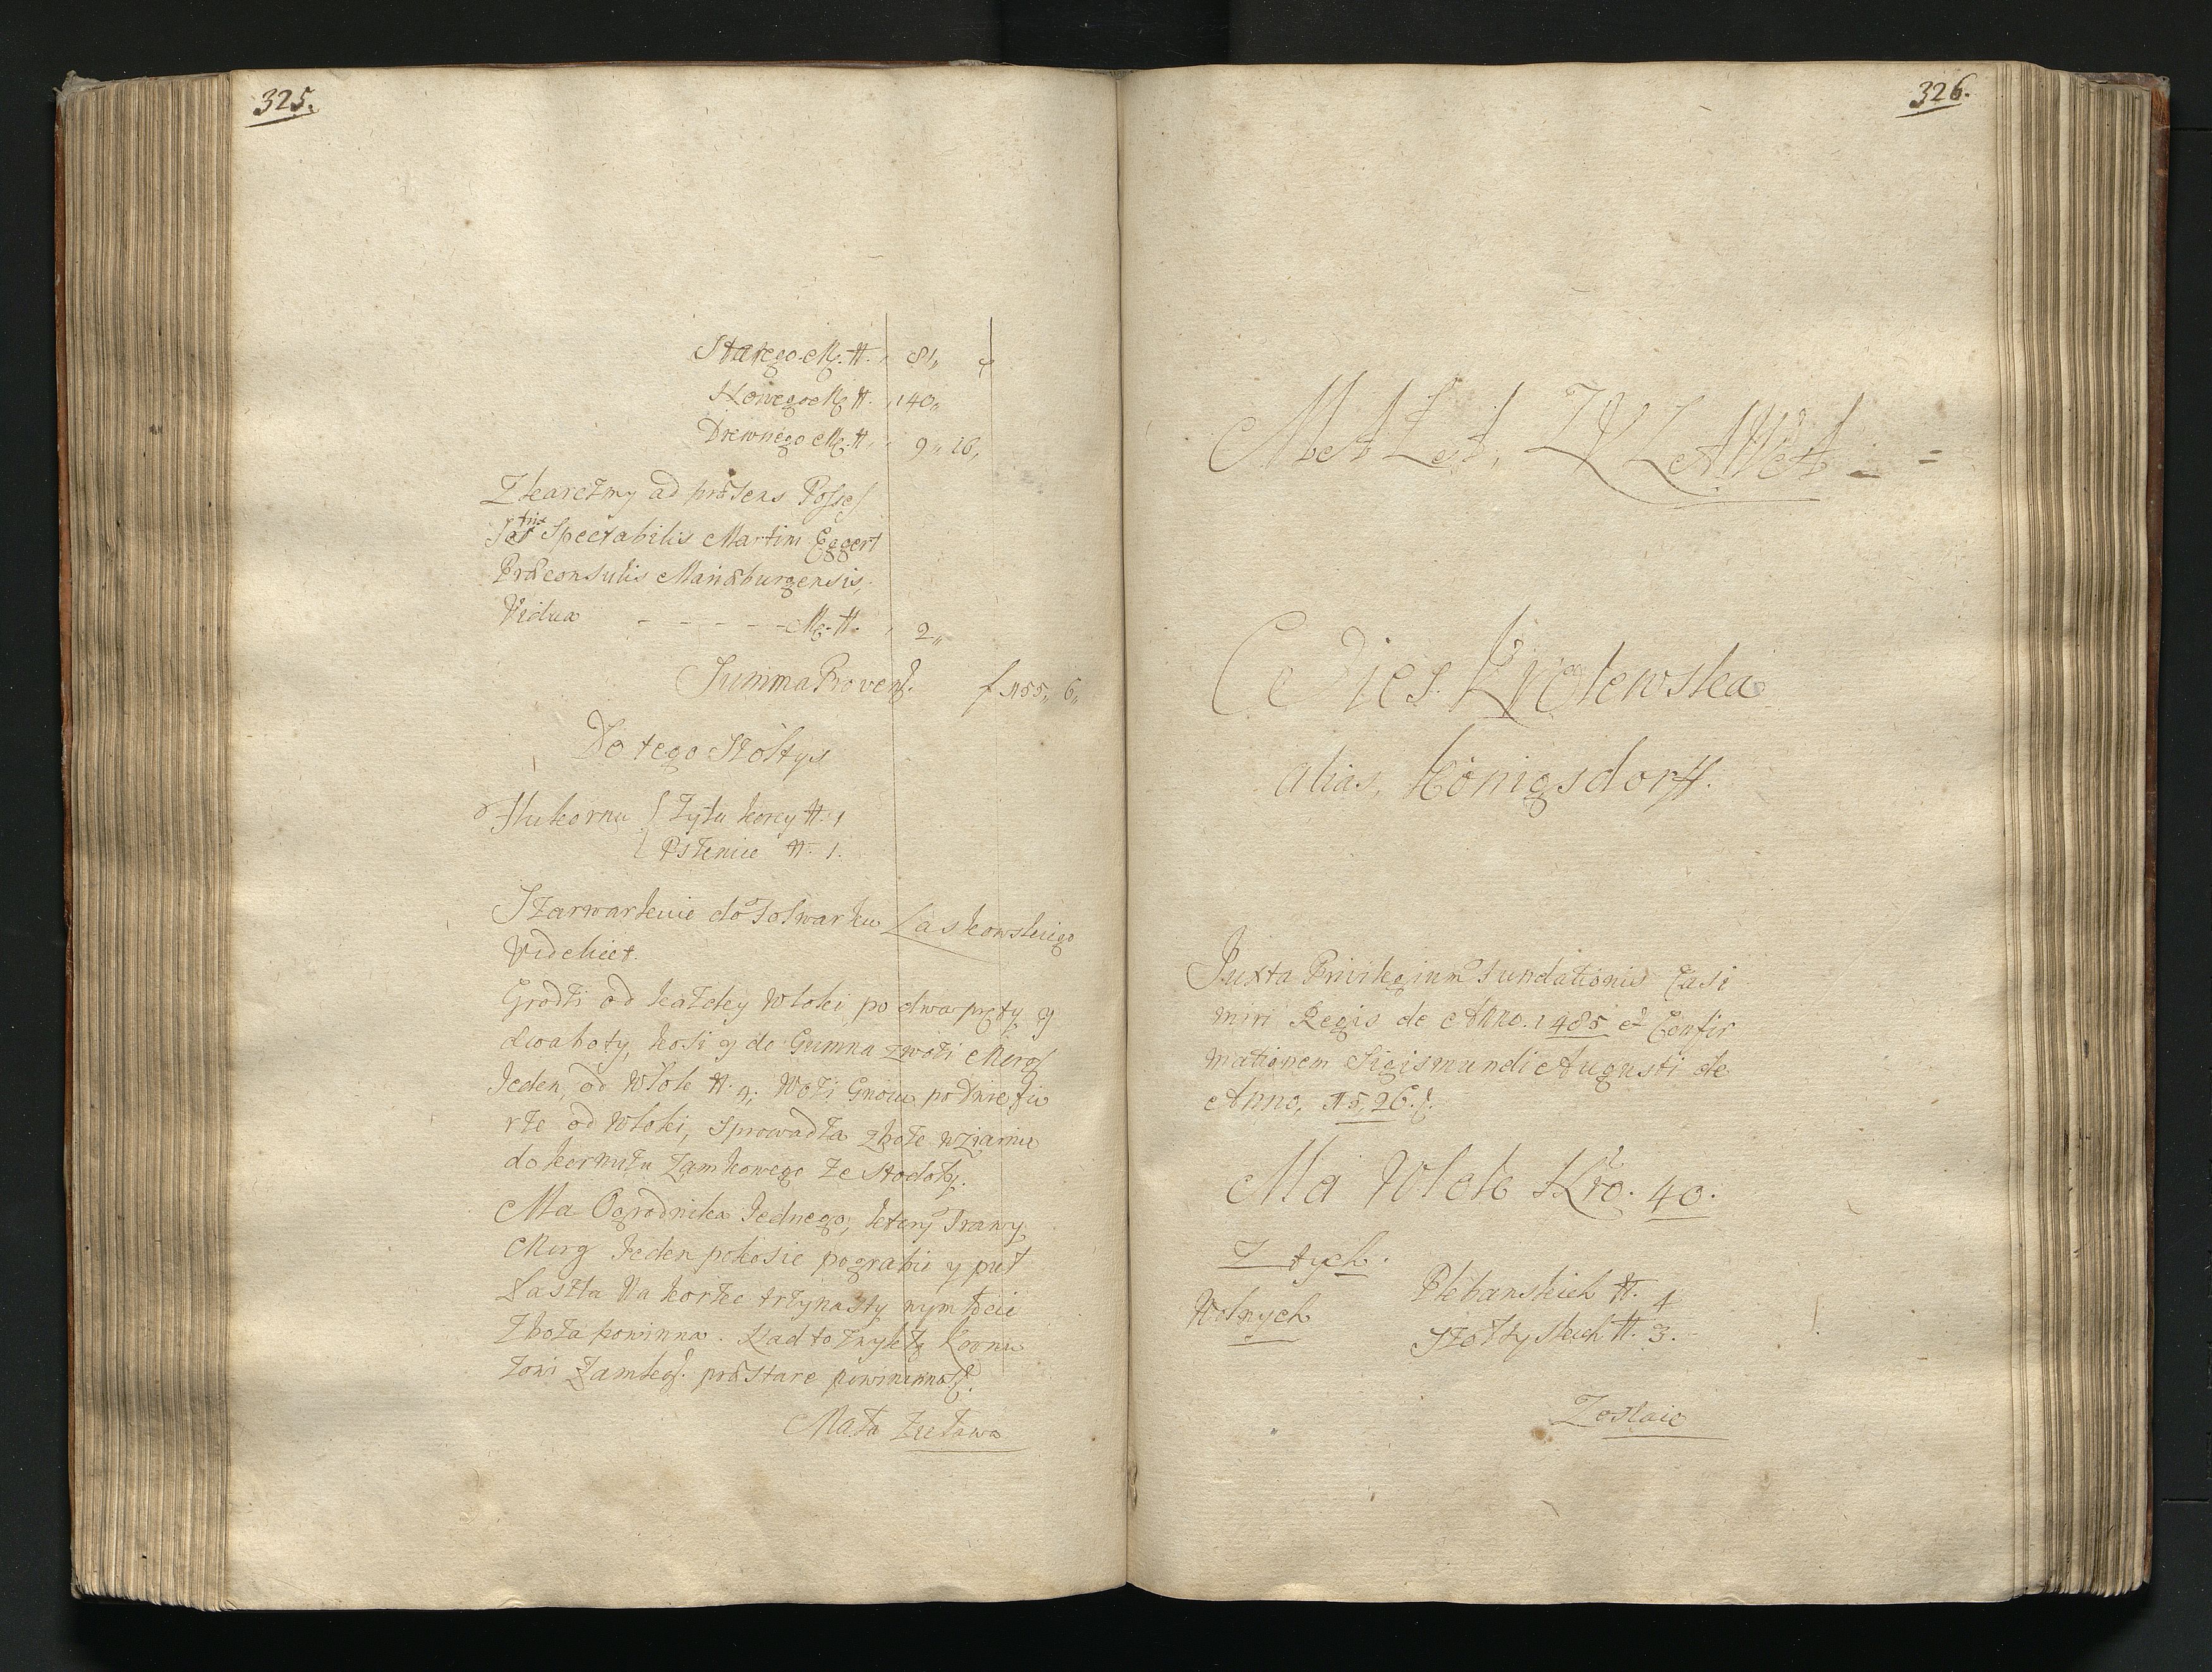 325.
Starego M. #. 81,,
Nowego M #. 140,,
Drewnego M. #. 9,, 16,
Z karczmy ad præsens Posses
Spectabilis Martini Eggert
Præconsulis Mariæburgensis,
Vidua - - - - - M. #. 2,,
Summa Provent. f 155,, 6,,
Do tego Szołtys
Żyta korcy #. 1
Pszenice #. 1.
Szarwarkuie do Folwarku Laskowskiego
Videlicet.
Grodzi od każdey Włoki po dwa pręty y
dwa boty, kosi y do Gumna zwozi Morg
Jeden, od Włok #. Wozi Gnoiu po Dnie
od Włoki, Sprowadza zboże
do Zamkowego ze Stodoły.
Ma Ogrodnika Jednego, ktory Trawy
Morg Jeden pokosić pograbić y puł
Łaszta Na korzec trzynasty wymłocić
Zboża powinna. Nad to zwykłą
Zamkos. præstare powinność.
Mała Żuława
326.
MAŁA, ZUŁAWA - =
Ce Dies Krolewska
alias, Königsdorff.
Juxta Privilegium Fundationis Casi
miri Regis de Anno. 1485 et Confir
mationem Sigismundi Augusti de
Anno, 1526.
Ma Włok Nro. 40.
Z tych.
Wolnych
Plebanskich #. 4
Szołtyskich #. 3.
Zostaie